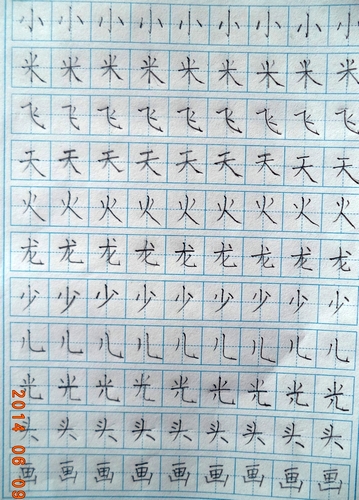 小小小小小小小小小
米米米米米米米米米
飞飞飞飞飞飞飞飞飞
天天天天天天天天天
火火火火火火火火火
龙龙龙龙龙龙龙龙龙
少少少少少少少少少
儿儿儿儿儿儿儿儿儿
光光光光光光光光光
头头头头头头头头头
画画画画画画画画画
2014 06 09